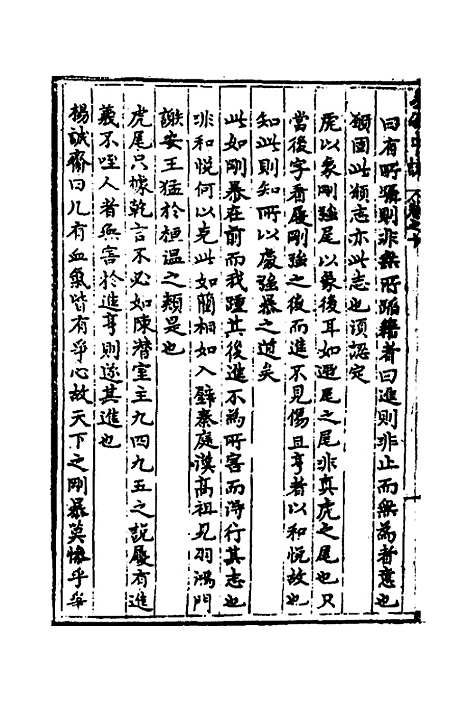 曰有所躡則非無所蹈籍者曰進則非止而無為者意也
頻固此頻志亦此志也須認定
虎以象剛強尾以象後耳如遯尾之尾非真虎之尾也只
當後字看履剛強之後而進不見傷且亨者以和悅故也
知此則知所以處強暴之道矣
此如剛暴在前而我踵其後進不為所害而得行其志也
非和悅何以克此如藺相如入辟秦庭漢高祖見羽鴻門
謝安王猛於桓溫之類是也
虎尾只據乾言不必如陳潛室主九四九五之說履有進
義不咥人者無害於進亨則遂其進也
楊誠齋曰凡有血氣皆有爭心故天下之剛暴莫慘乎爭